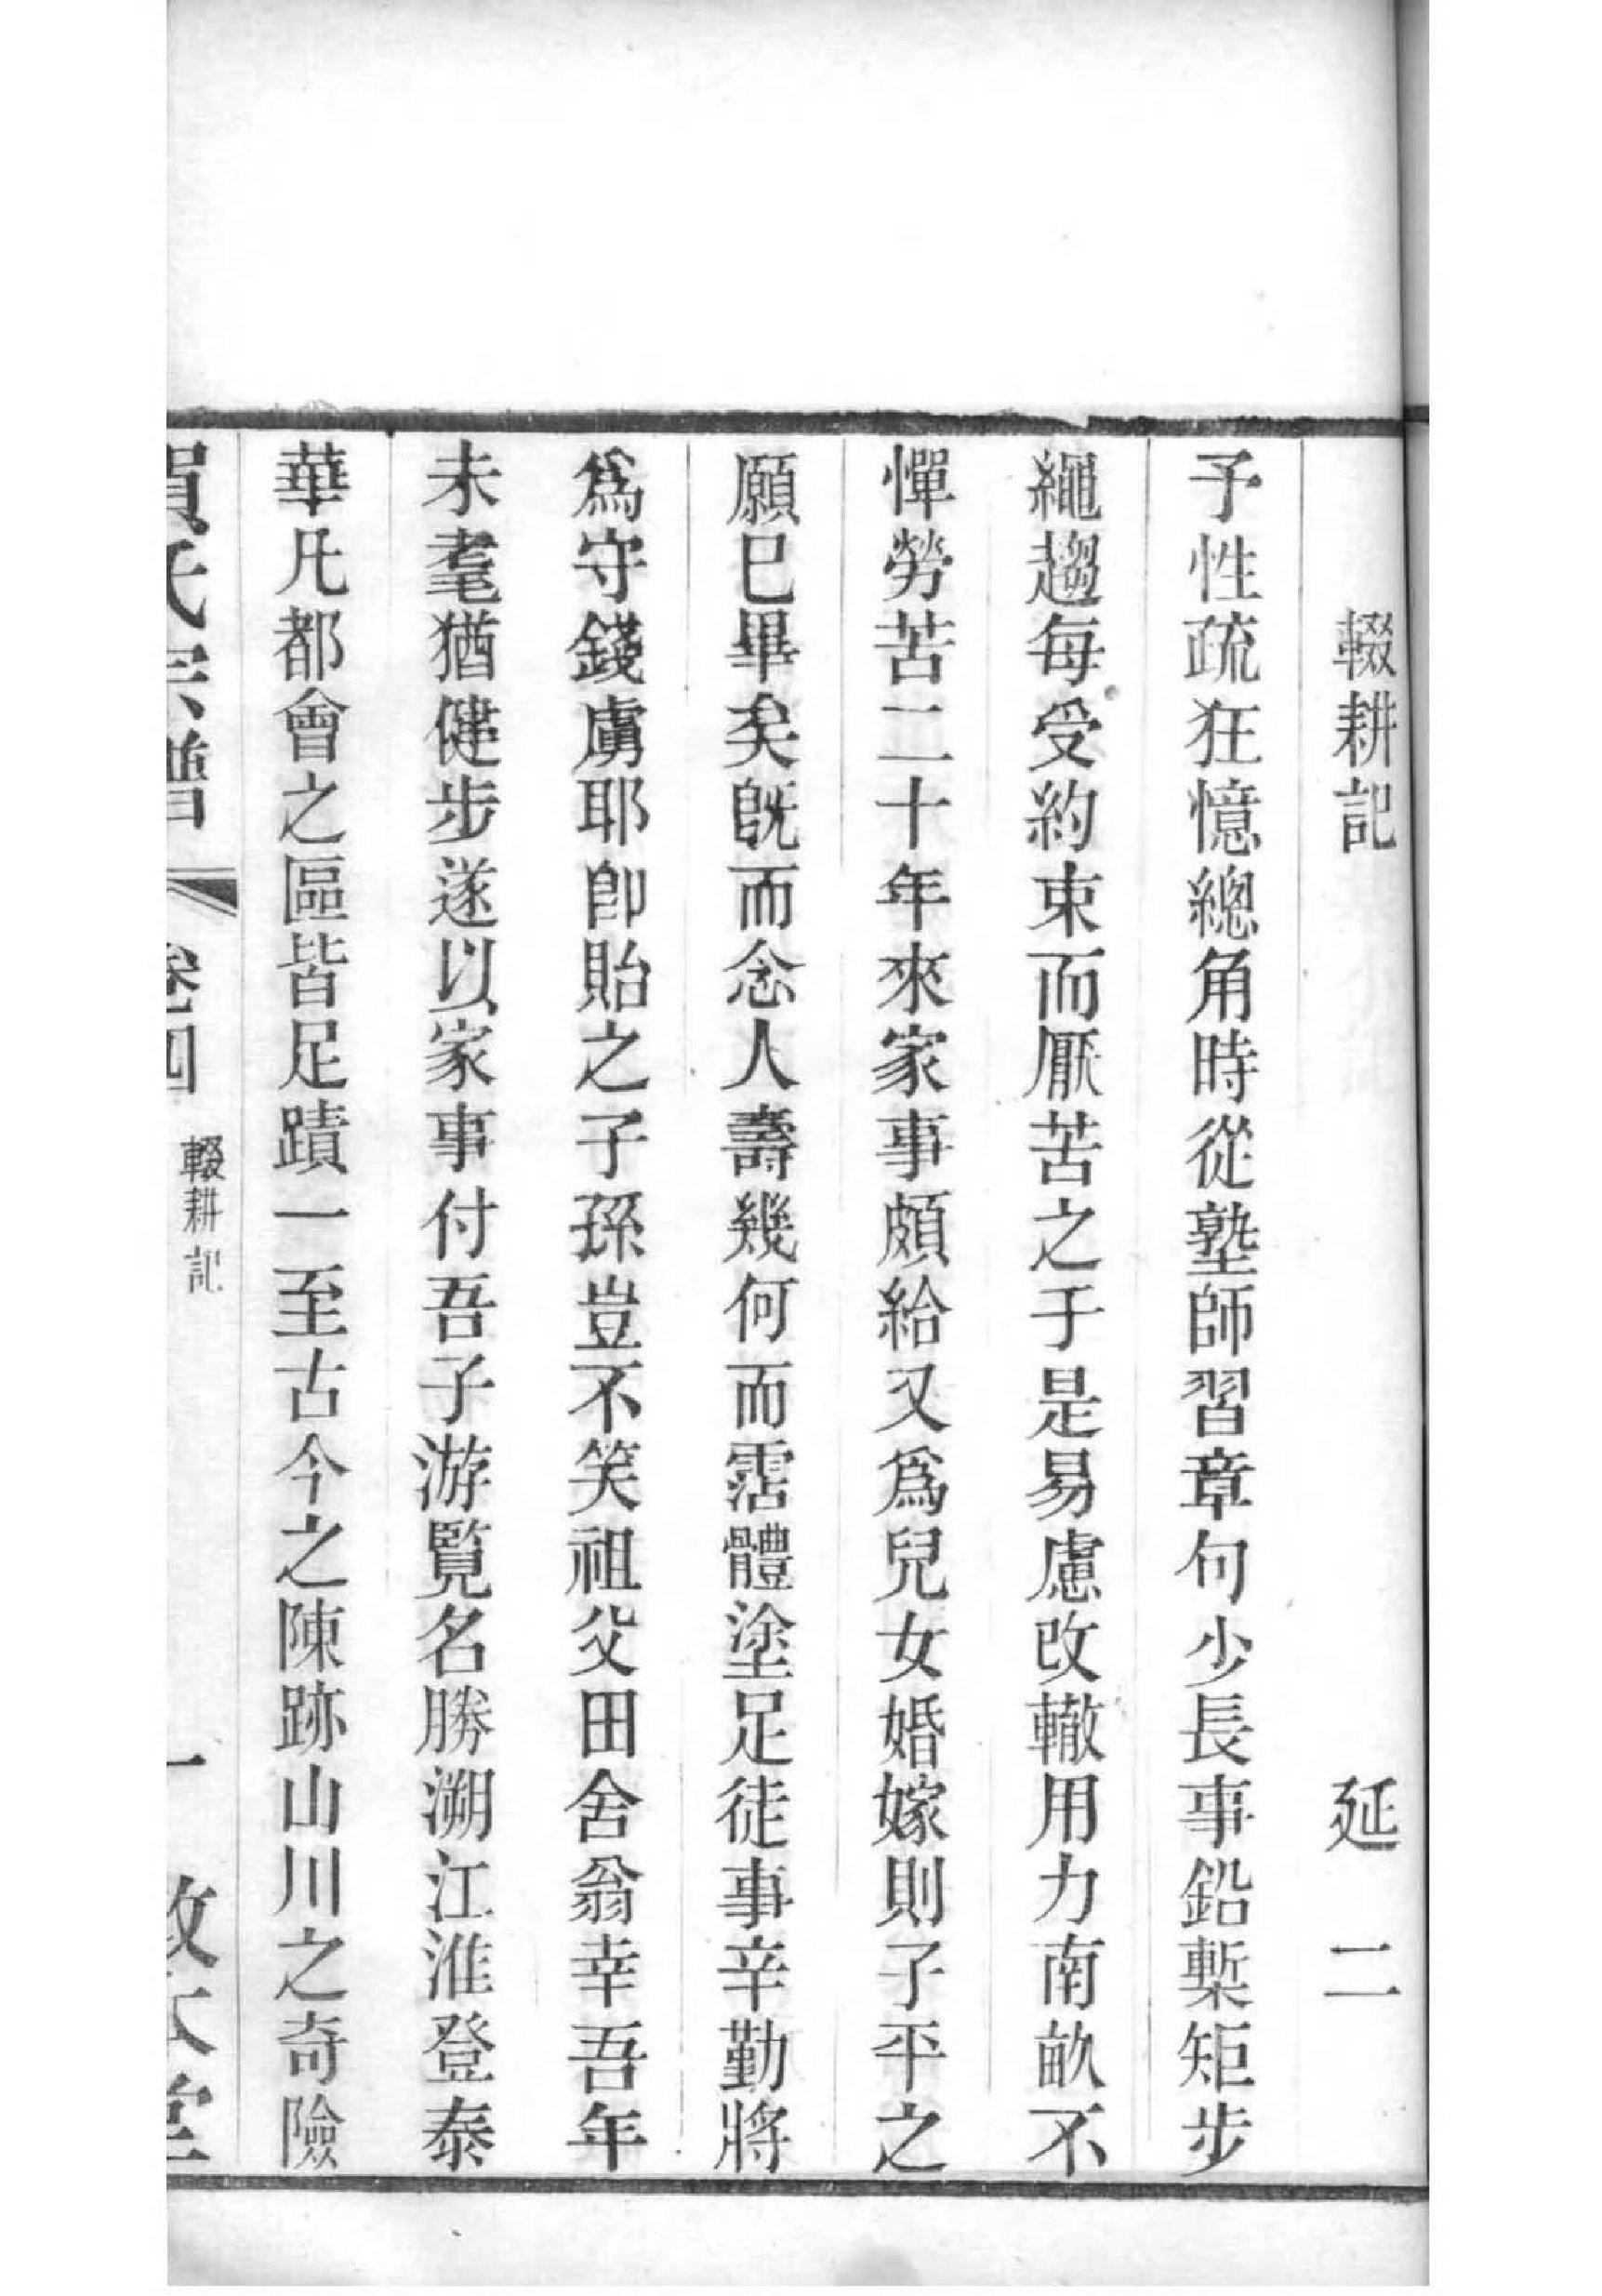 輟耕記 延二
予性疏狂憶總角時從塾師習章句少長事鉛槧矩步
繩趨每受約束而厭苦之于是易慮改轍用力南畝不
憚勞苦二十年來家事頗給又爲兒女婚嫁則子平之
願已畢矣旣而念人壽幾何而霑體塗足徒事辛勤將
爲守錢虜耶卽貽之子孫豈不笑祖父田舍翁幸吾年
未耄猶健步遂以家事付吾子游覽名勝溯江淮登泰
華凡都會之區皆足蹟一至古今之陳跡山川之奇險
賀氏宗譜 卷四 輟耕記 一 敦本堂